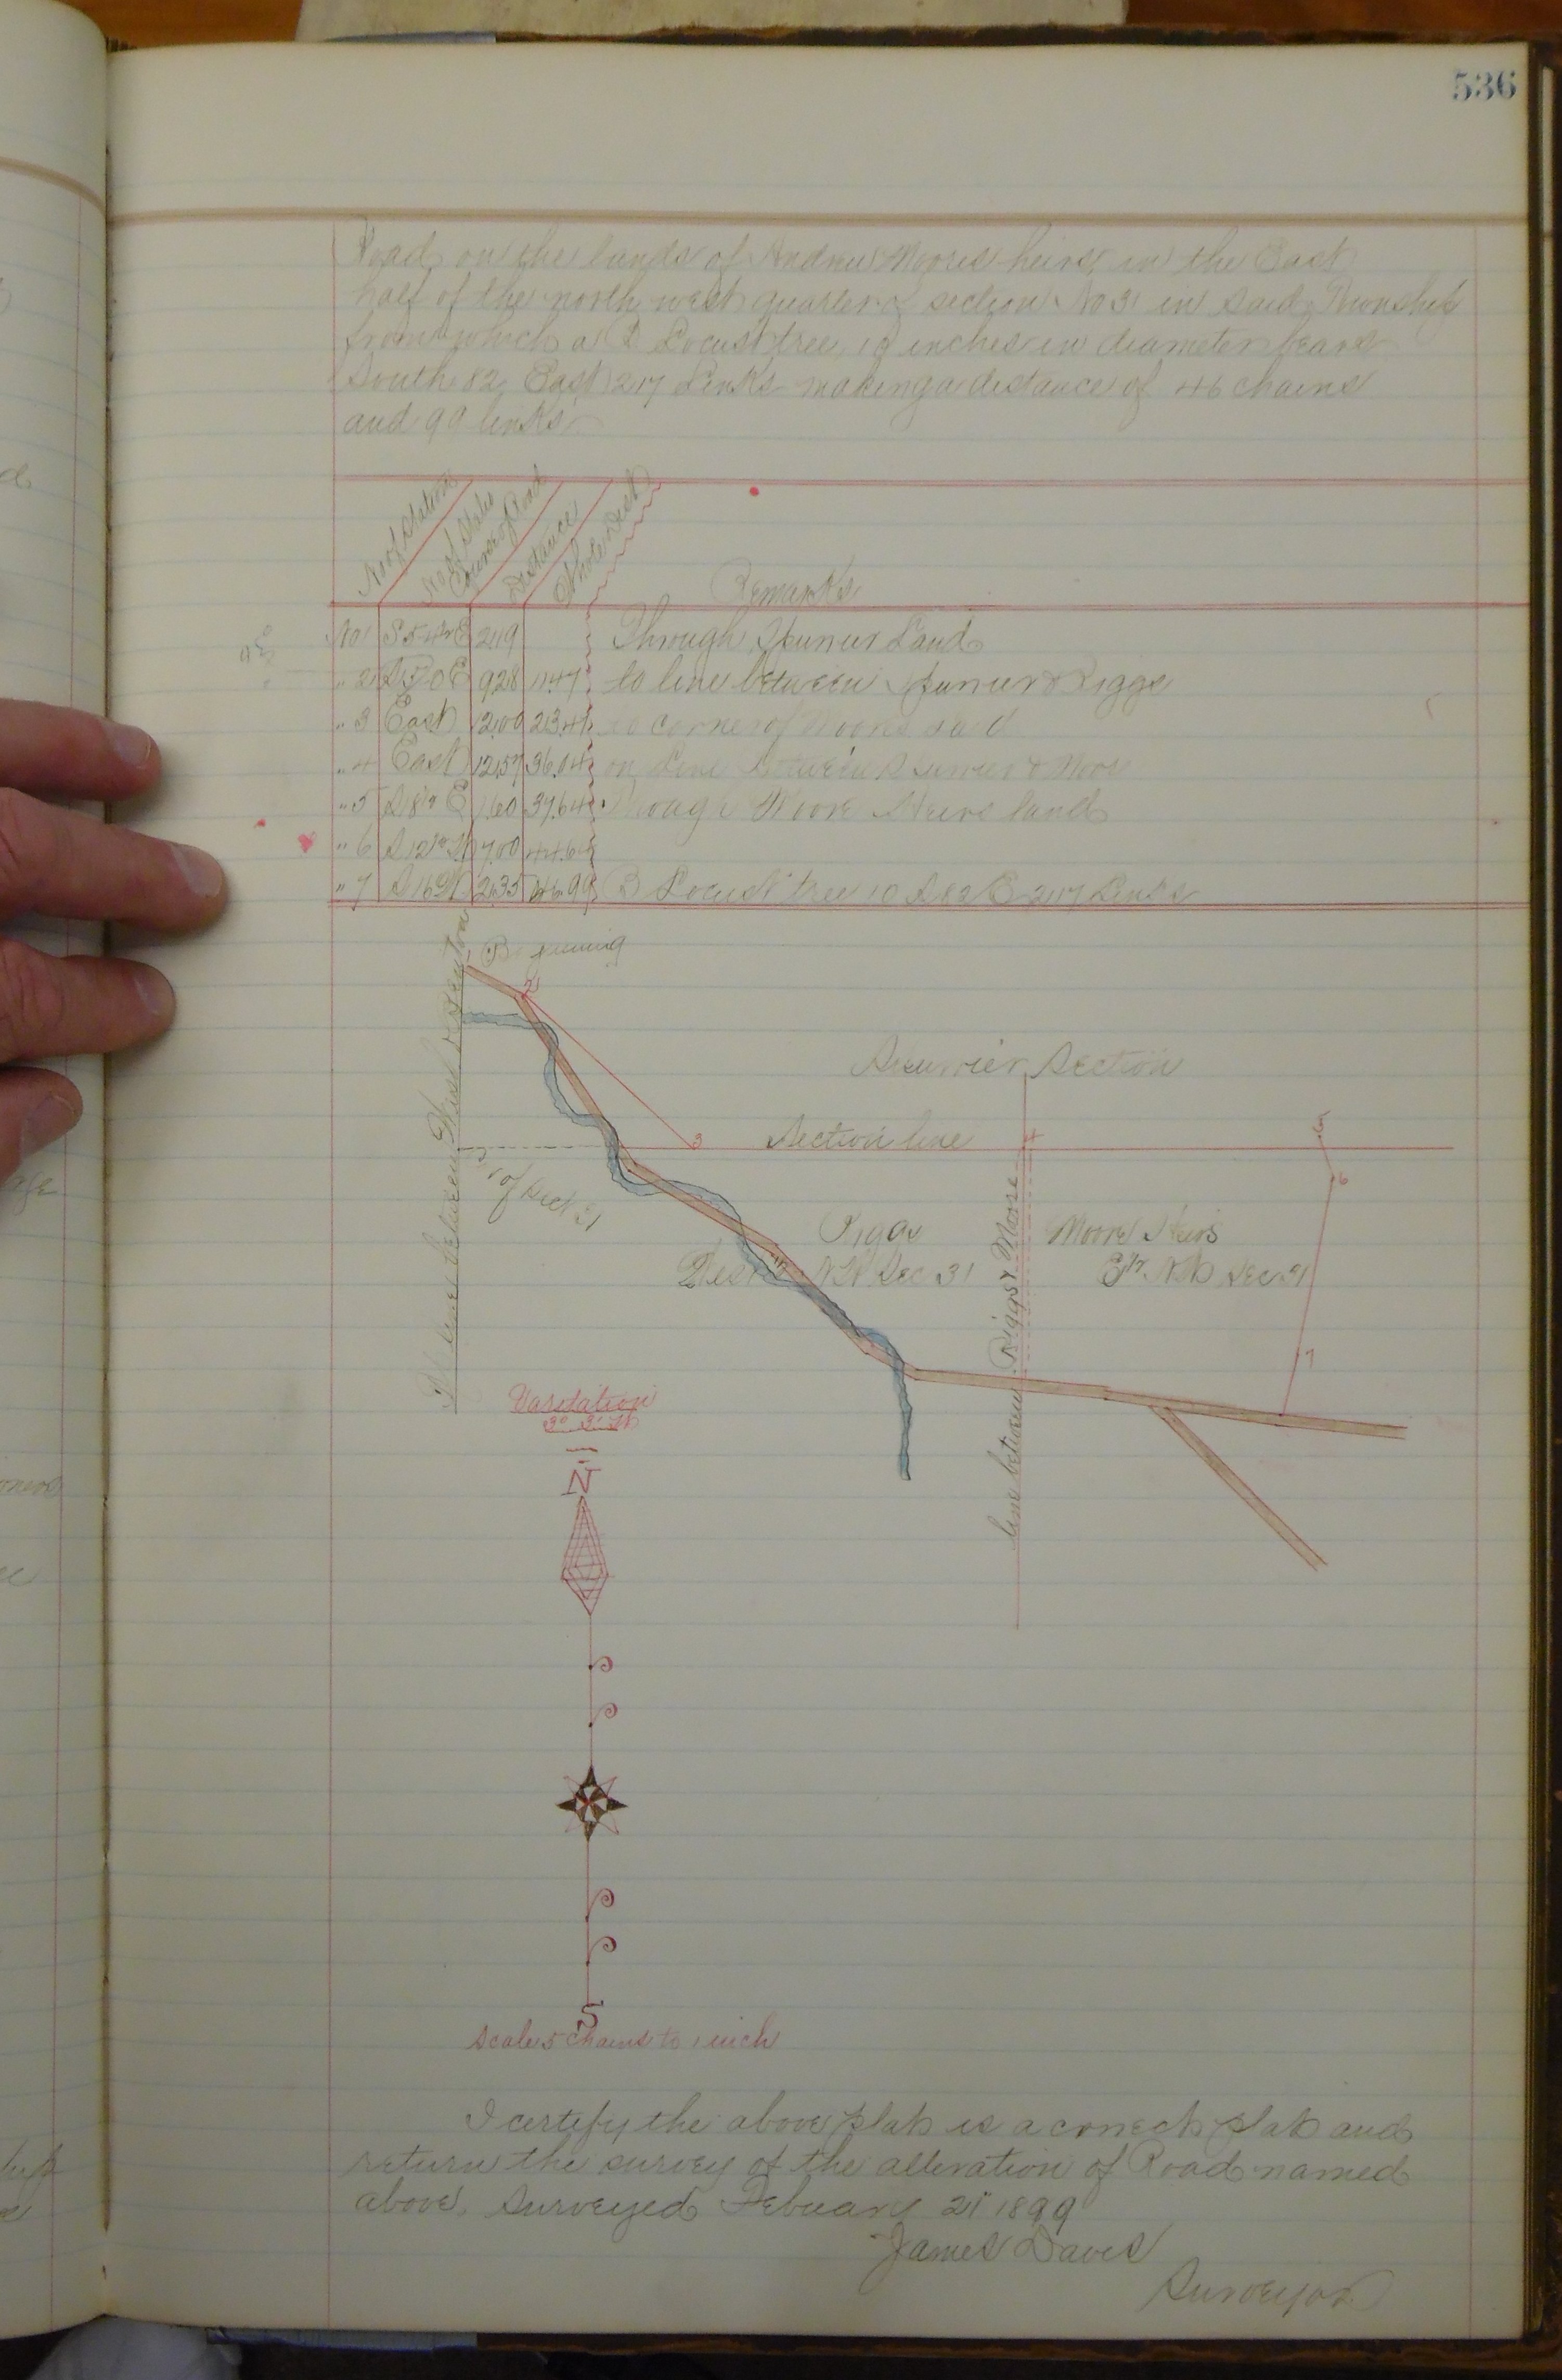 536
Road on the lands of Andrew Moores heirs, in the East
half of the north west quarter of section No 31 in said Township
from which a B Locust tree, 10 inches in diameter bears
South 82 East 217 Links making a distance of 46 chains
and 99 links
No of Station
No of Stales
Course of Road
Distance
Whole Dist
Remarks
No 1 S 54 1/2 E 2.19 Through Land
" 2 S 50 E 9.28 11.47 to line between & Riggs
" 3 East 12.00 23.47 to corner of Moores Land
" 4 East 12.57 36.04 on Line between & Moore
" 5 S 8 1/2 E 1.60 37.64 Through Moore Heirs land
" 6 S 12 1/2 W 7.00 44.64
" 7 S 16 W 2.35 46.99 B Locust tree 10 S 82 E 217 Links
1 Beginning
2
Section
3
Section line
4
5
6
of Sect 31
Riggs
West NW Sec 31
Moore Heirs
E 1/2 NW Sec 31
7
line between Riggs & Moore
Variation
3° 3' W
N
S
Scale 5 Chains to 1 inch
I certify the above plat is a correct plat and
return the survey of the alteration of Road named
above. Surveyed Febuary 21" 1899
James Davis
Surveyor